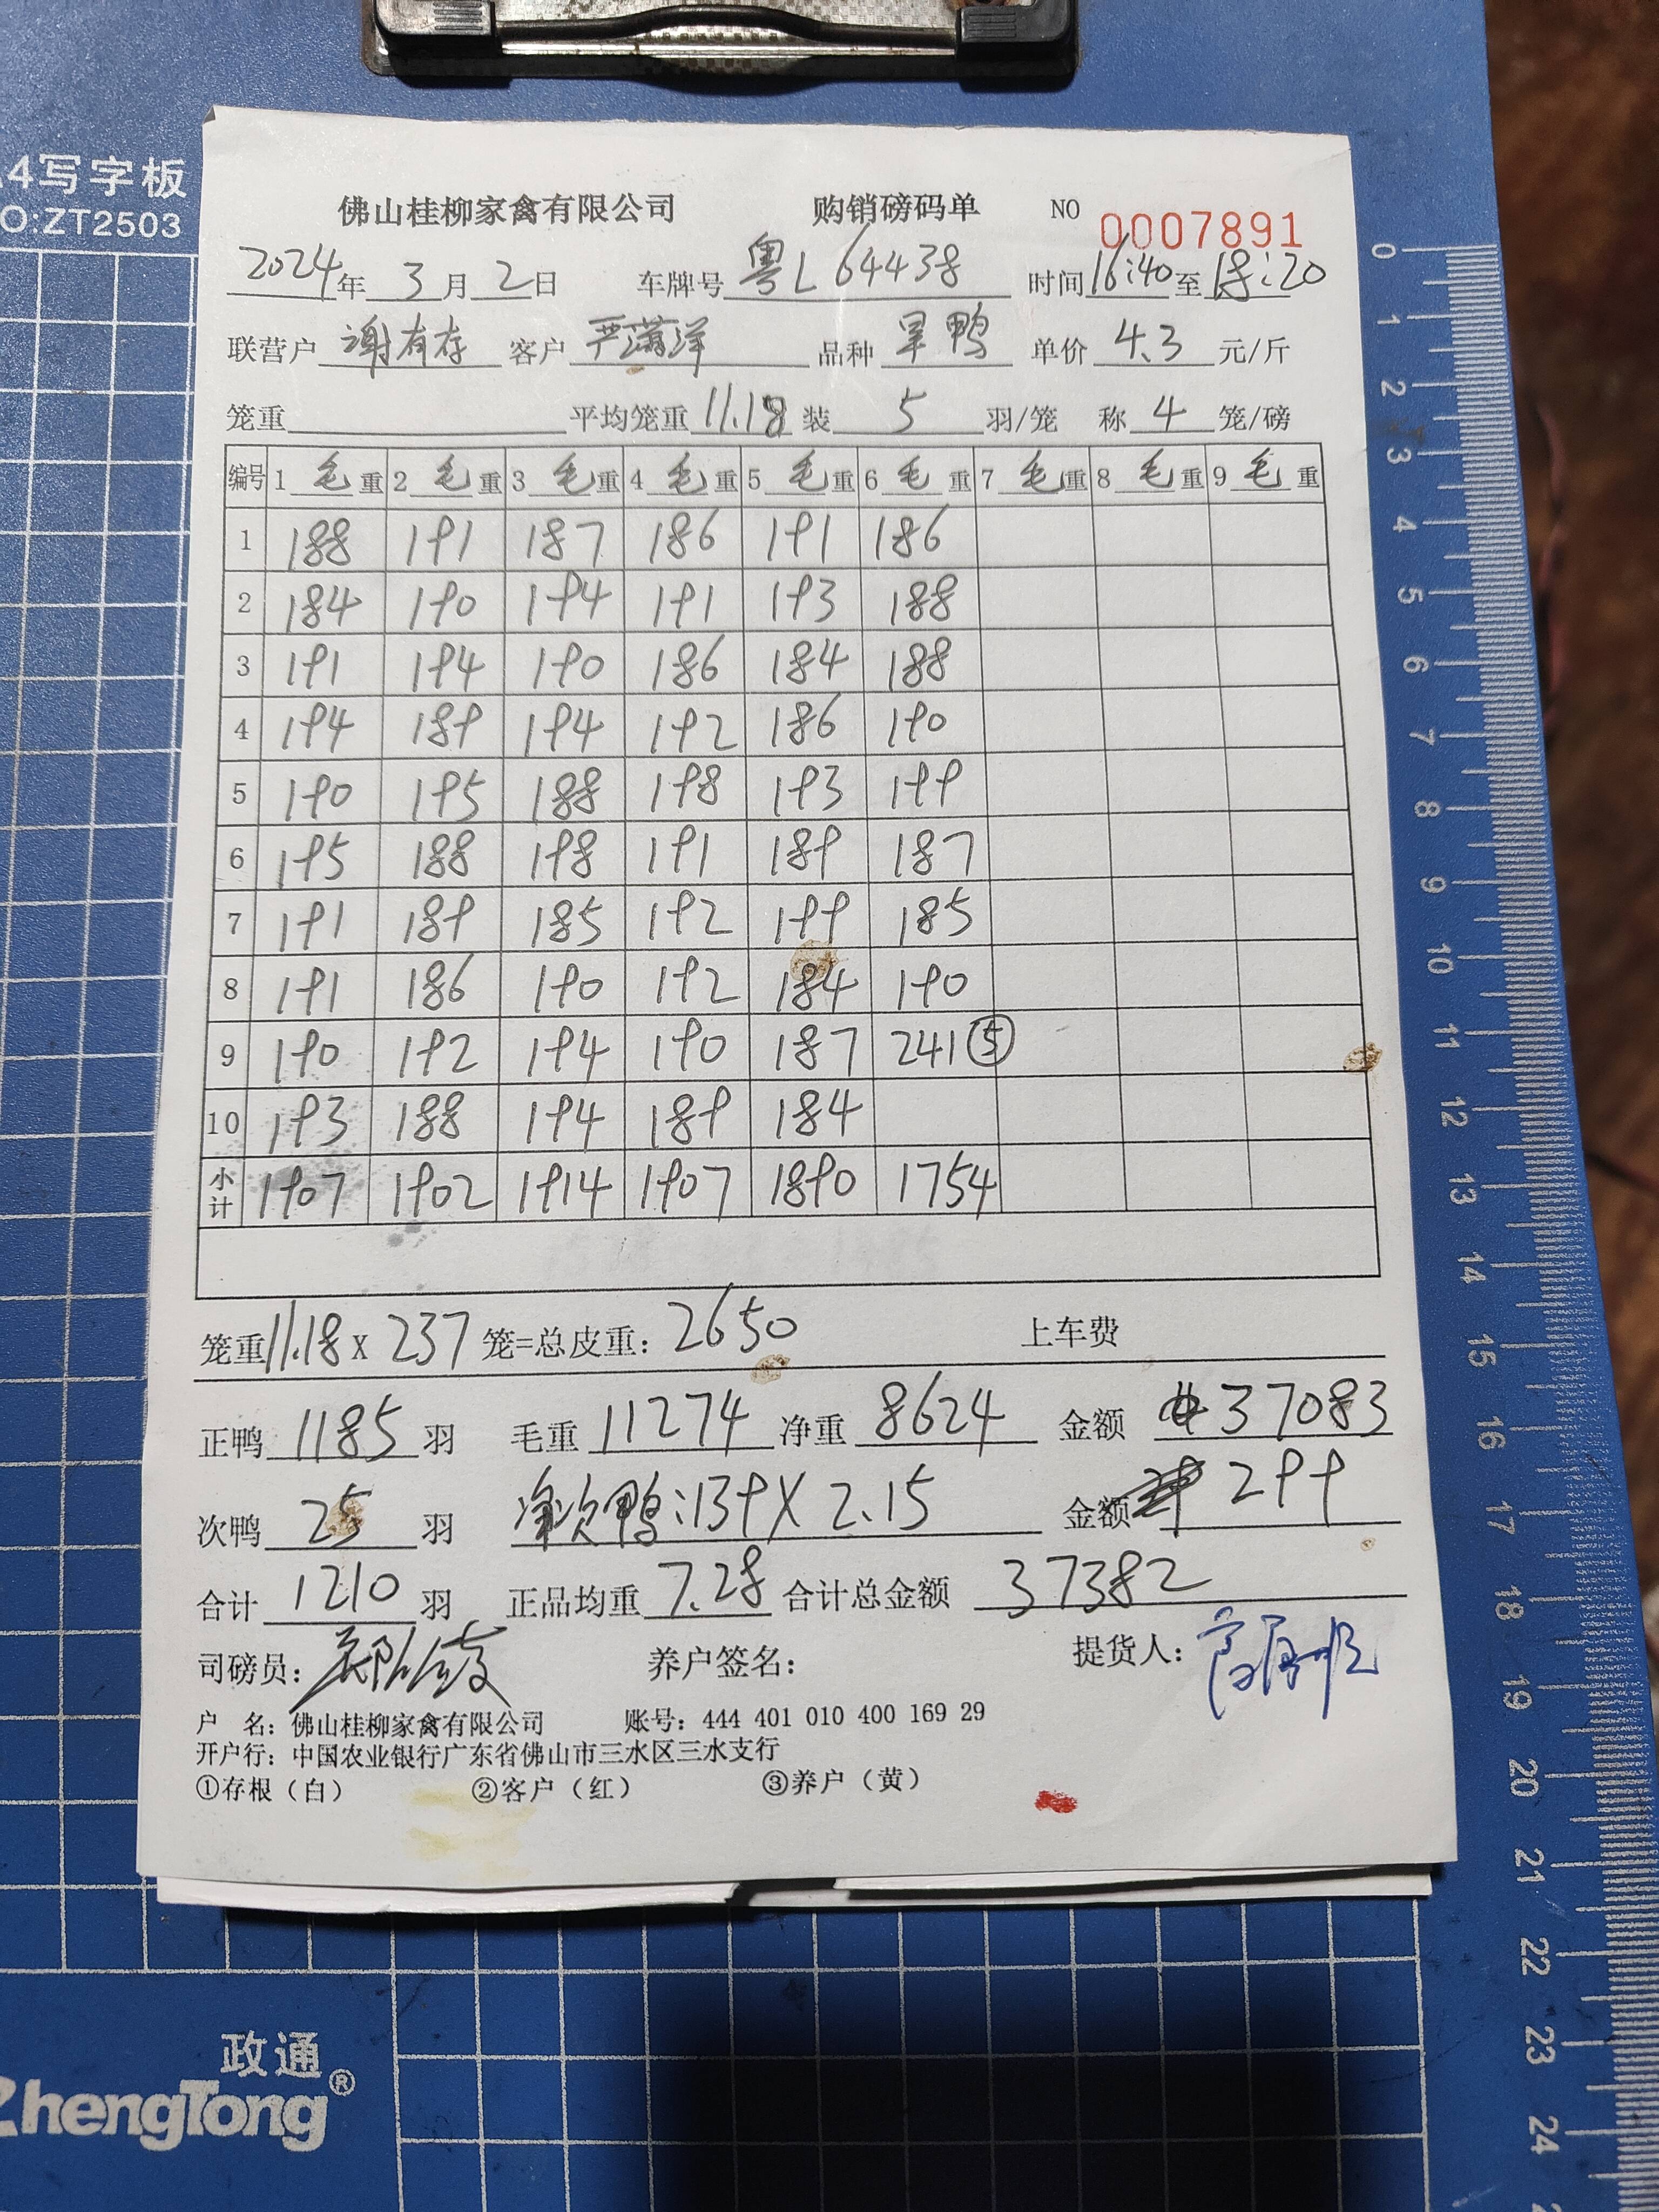 A4写字板
NO:ZT2503
佛山桂柳家禽有限公司 购销磅码单 NO 0007891
2024年 3月 2日 车牌号 粤L64438 时间 16:40 至 18:20
联营户 谢有存 客户 严潇洋 品种 旱鸭 单价 4.3 元/斤
笼重 平均笼重 11.18 装 5 羽/笼 称 4 笼/磅
编号 1 毛重 2 毛重 3 毛重 4 毛重 5 毛重 6 毛重 7 毛重 8 毛重 9 毛重
1 188 191 187 186 191 186
2 184 190 194 191 193 188
3 191 194 190 186 184 188
4 194 189 194 192 186 190
5 190 195 188 198 193 199
6 195 188 198 191 189 187
7 191 189 185 192 199 185
8 191 186 190 192 184 190
9 190 192 194 190 187 241⑤
10 193 188 194 189 184
小计 1907 1902 1914 1907 1890 1754
笼重 11.18 X 237 笼=总皮重: 2650 上车费
正鸭 1185 羽 毛重 11274 净重 8624 金额 37083
次鸭 25 羽 次鸭:139X2.15 金额 299
合计 1210 羽 正品均重 7.28 合计总金额 37382
司磅员: 养户签名: 提货人:
户 名: 佛山桂柳家禽有限公司 账号: 444 401 010 400 169 29
开户行: 中国农业银行广东省佛山市三水区三水支行
①存根（白） ②客户（红） ③养户（黄）
政通
ZhengTong®
0 1 2 3 4 5 6 7 8 9 10 11 12 13 14 15 16 17 18 19 20 21 22 23 24